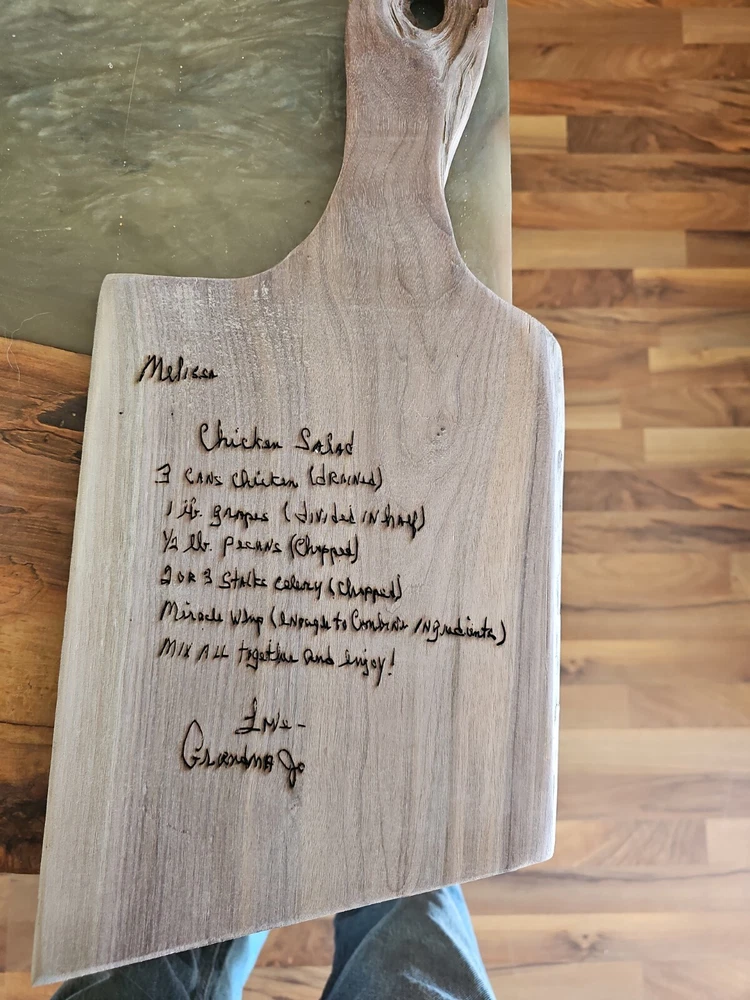 Melissa
Chicken Salad
3 cans chicken (drained)
1 lb. grapes (divided in half)
1/2 lb. pecans (chopped)
2 or 3 stalks celery (chopped)
Miracle Whip (enough to combine ingredients)
Mix all together and enjoy!
Love -
Grandma Jo